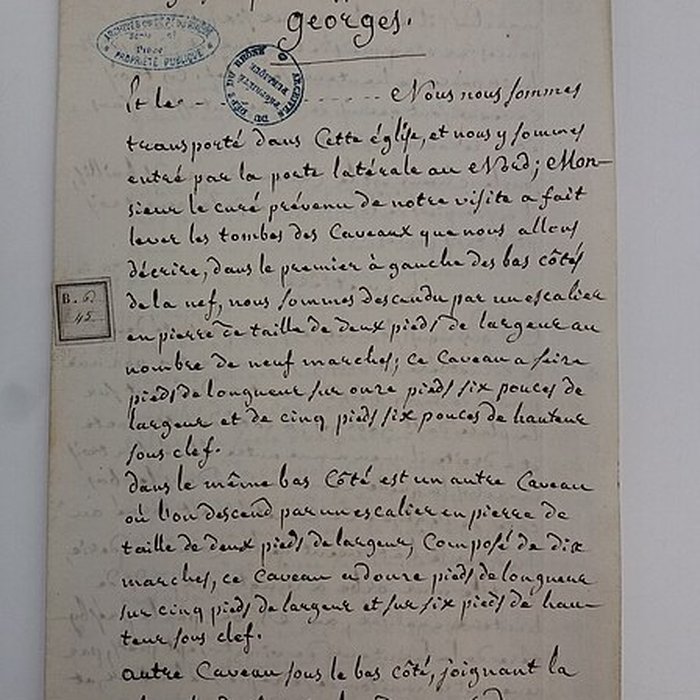 georges.
ARCHIVES DU DÉPT DU RHÔNE
PROPRIÉTÉ PUBLIQUE
ARCHIVES DU DÉPT DU RHÔNE
PROPRIÉTÉ PUBLIQUE
Et le - - - - - - - - - - Nous nous sommes
transporté dans Cette église, et nous y sommes
entré par la porte latérale au Nord; Mon-
sieur le curé prévenu de notre visite a fait
lever les tombes des Caveaux que nous allons
décrire, dans le premier à gauche des bas côtés
de la nef, nous sommes descendu par un escalier
en pierre de taille de deux pieds de largeur au
nombre de neuf marches; ce Caveau a seize
pieds de longueur sur onze pieds six pouces de
largeur et de cinq pieds six pouces de hauteur
sous clef.
dans le même bas Côté est un autre Caveau
où l'on descend par un escalier en pierre de
taille de deux pieds de largeur, Composé de dix
marches, ce Caveau a douze pieds de longueur
sur cinq pieds de largeur et sur six pieds de hau-
teur sous clef.
autre Caveau sous le bas côté, joignant la
B. 6)
45